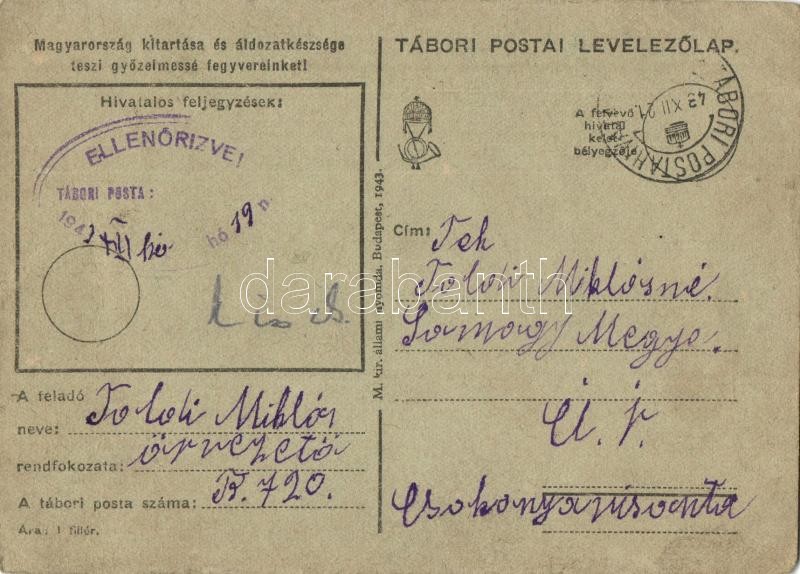 Magyarország kitartása és áldozatkészsége
teszi győzelmessé fegyvereinket!
Hivatalos feljegyzések:
ELLENŐRIZVE!
TÁBORI POSTA:
194 XII hó 19 n.
A feladó
neve: Toldi Miklós
rendfokozata: őrvezető
A tábori posta száma: B. 720.
Ára: 1 fillér.
M. kir. állami nyomda. Budapest, 1943.
TÁBORI POSTAI LEVELEZŐLAP.
A felvevő
hivatal
kelet-
bélyegzője
TÁBORI POSTAHIV
43 XII 21
Cím: Tek
Toldi Miklósné.
Somogy Megye.
Ú. p.
Csokonyavisonta
darabanth